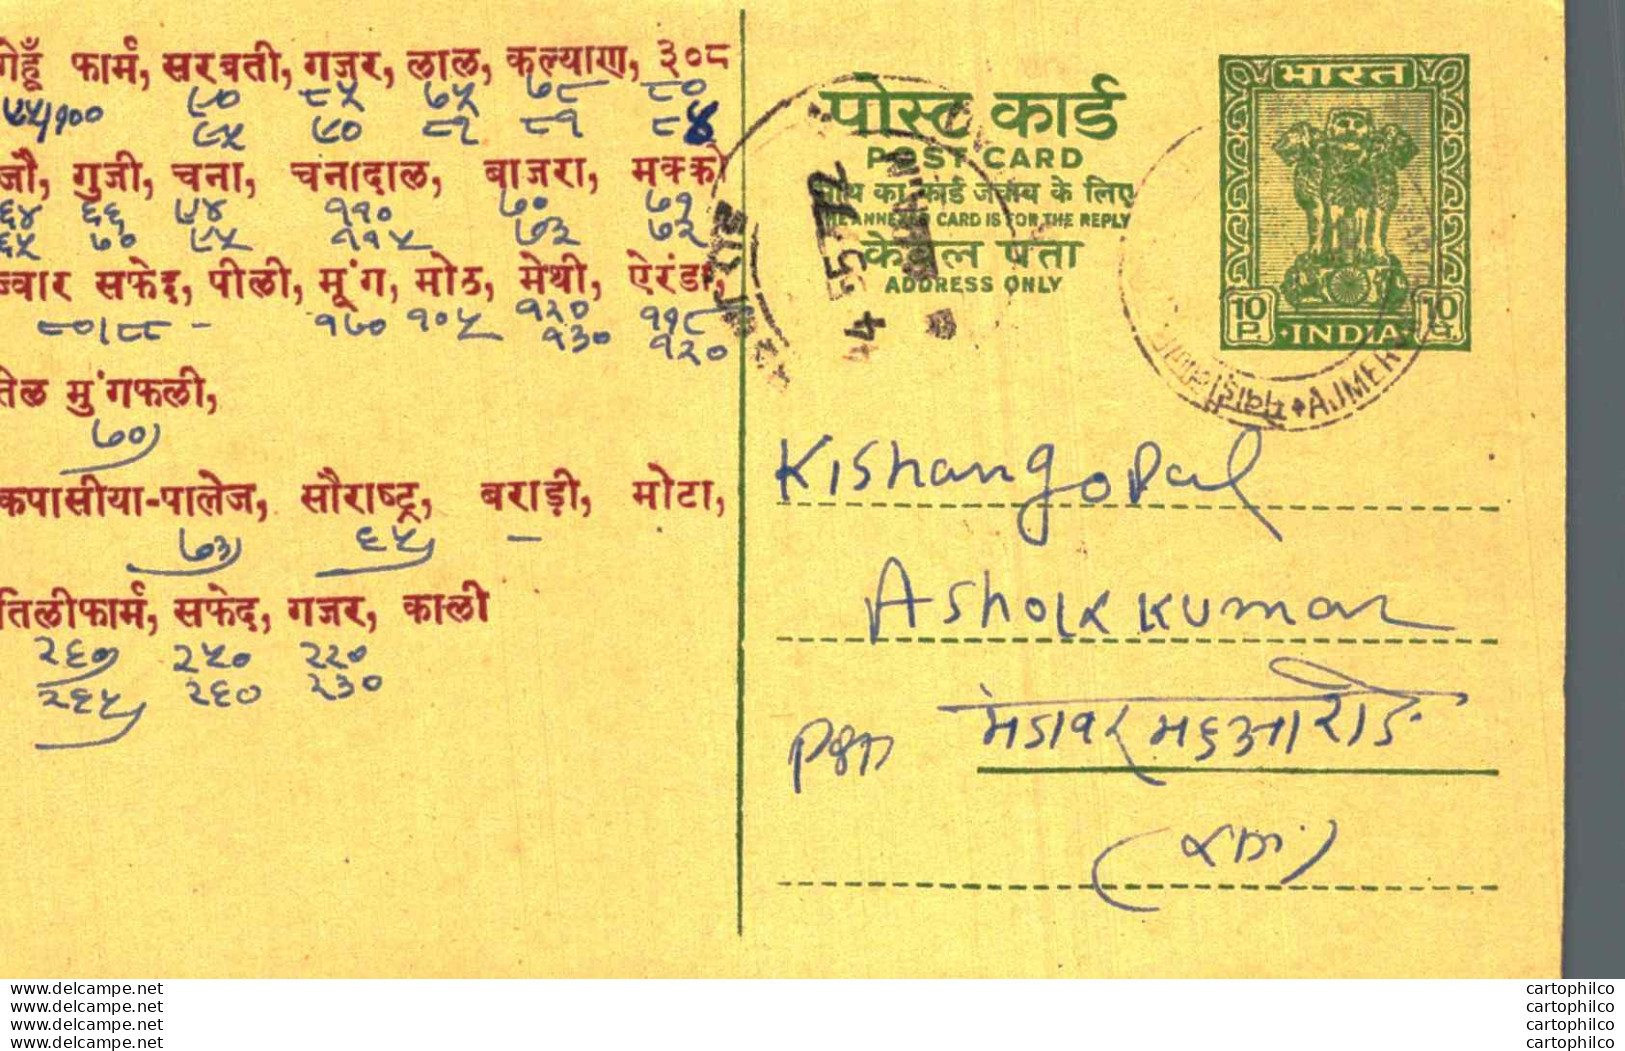 गेहूँ फार्म, सरबती, गजर, लाल, कल्याण, ३०८
९५/१०० ८० ८५ ७५ ७८ ८०
८५ ९० ८१ ८१ ८४
जौ, गुजी, चना, चनादाल, बाजरा, मक्की
६४ ६६ ९४ ११० ७० ७१
६५ ७० ९५ ११५ ७२ ७२
ज्वार सफेद, पीली, मूंग, मोठ, मेथी, ऐरंडा,
८०/८८ - १७० १०५ १२० ११८
१३० १२०
तेल मुंगफली,
७०)
कपासीया-पालेज, सौराष्ट्र, बराड़ी, मोटा,
७३) ६५) -
तिलीफार्म, सफेद, गजर, काली
२६०) २५० २२०
२६५) २६० २३०
पोस्ट कार्ड
POST CARD
साथ का कार्ड जवाब के लिए
THE ANNEXED CARD IS FOR THE REPLY
केवल पता
ADDRESS ONLY
भारत
10 P. 10 P.
INDIA
4 5 72
AJMER
Kishangopal
Ashok Kumar
मंडावर महुआ रोड
www.delcampe.net
www.delcampe.net
www.delcampe.net
www.delcampe.net
cartophilco
cartophilco
cartophilco
cartophilco